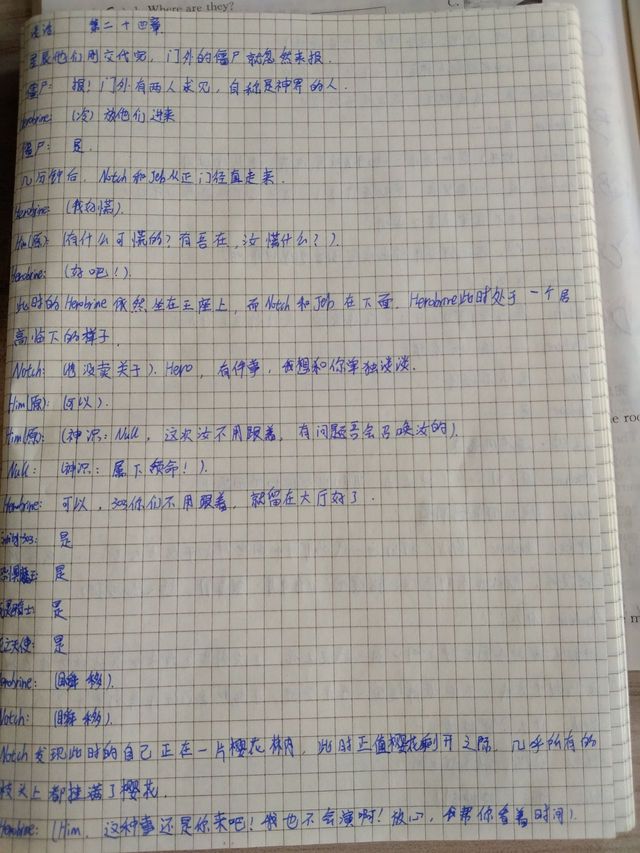 Where are they?
C.
第二十四章
是他们刚交代完，门外的僵尸就忽然来报.
僵尸： 报！门外有两人求见，自称是神界的人.
Herobrine： （冷）放他们进来
僵尸： 是.
几分钟后， Notch和Jeb从正门径直走来.
Herobrine： （我的慌）.
Him（原）： （有什么可慌的？有吾在，汝慌什么？）.
Herobrine： （好吧！）.
此时的Herobrine依然坐在王座上，而Notch和Jeb在下面. Herobrine此时处于一个居
高临下的样子.
Notch： （也没卖关子）. Hero，有件事，我想和你单独谈谈.
Him（原）： （可以）.
Him（原）： （神识：Null，这次汝不用跟着，有问题吾会召唤汝的）.
Null： （神识：属下领命！）.
Herobrine： 可以，303你们不用跟着，就留在大厅好了.
303： 是
恐惧魔王： 是
骑士： 是
天使： 是
Herobrine： （瞬移）.
Notch： （瞬移）.
Notch发现此时的自己正在一片樱花林内，此时正值樱花刚开之际，几乎所有的
枝头上都挂满了樱花.
Herobrine： （Him，这种事还是你来吧！我也不会演啊！放心，我帮你看着时间）.